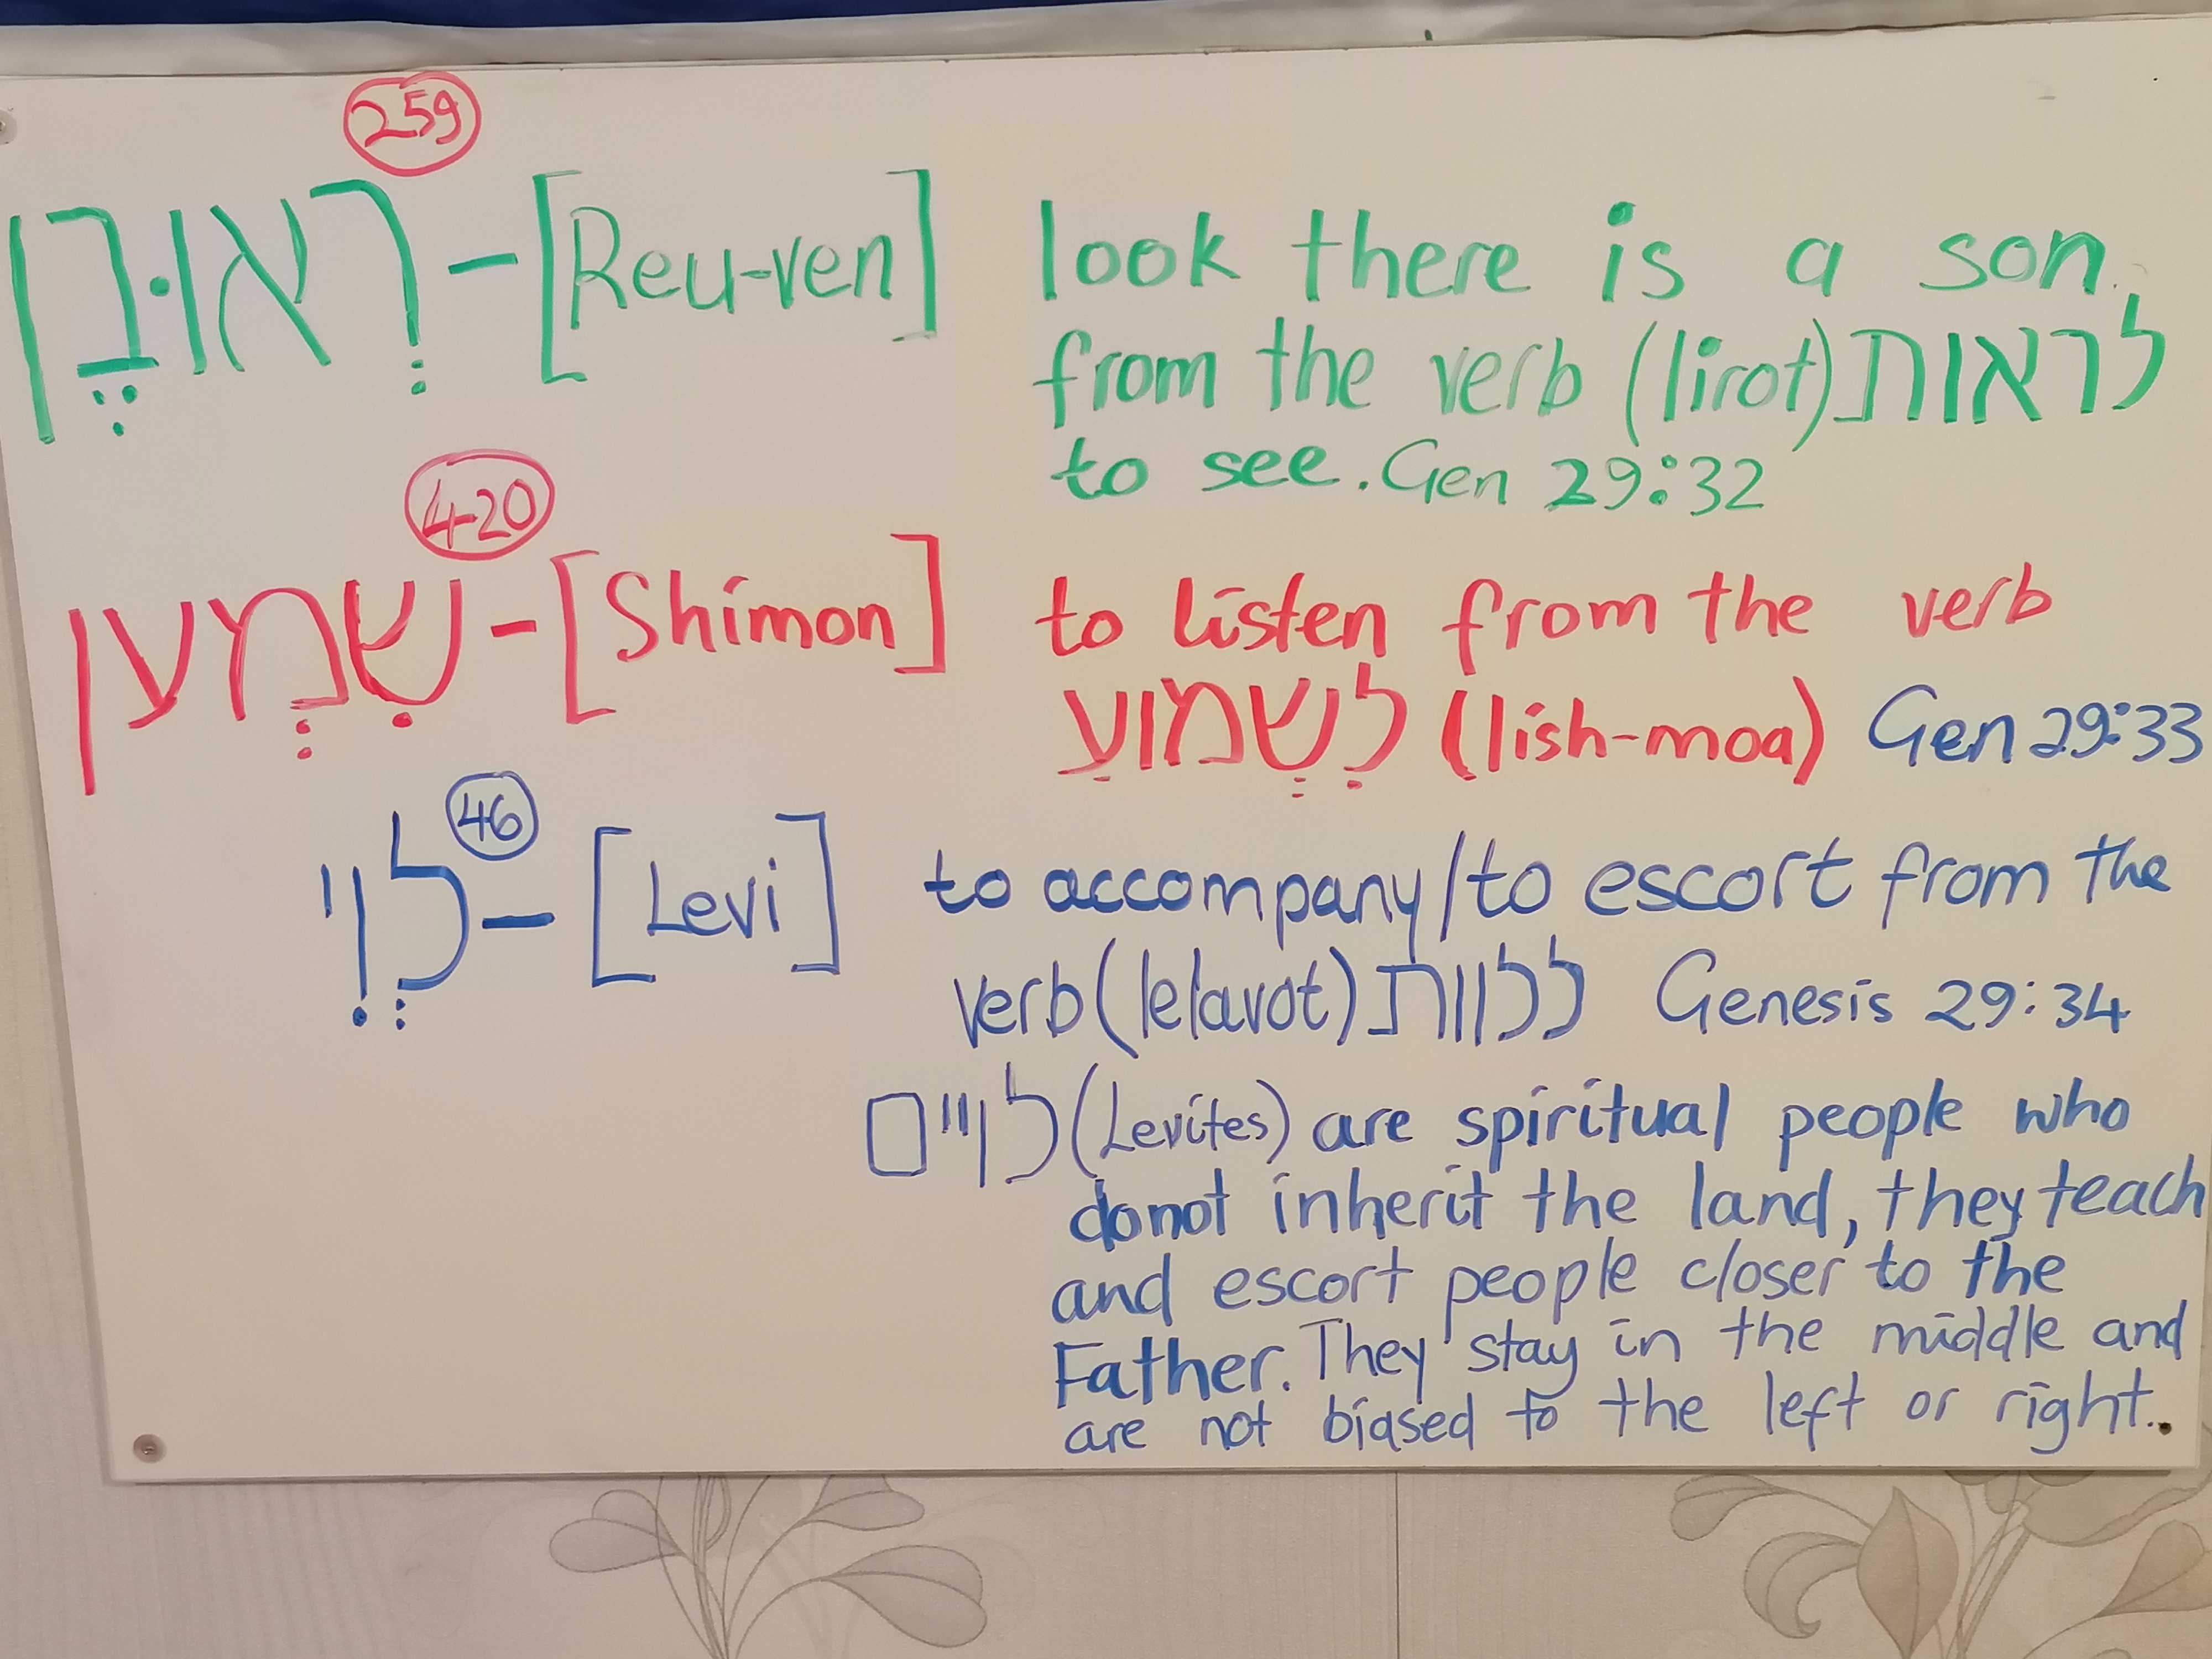 259
רְאוּבֶן - [Reu-ven] look there is a son,
from the verb (lirot) לראות
to see. Gen 29:32
420
שִמְען - [Shimon] to listen from the verb
לִשְמועַ (lish-moa) Gen 29:33
46
לְוִי - [Levi] to accompany/to escort from the
verb (lelavot) ללוות Genesis 29:34
לויים (Levites) are spiritual people who
donot inherit the land, they teach
and escort people closer to the
Father. They stay in the middle and
are not biased to the left or right..